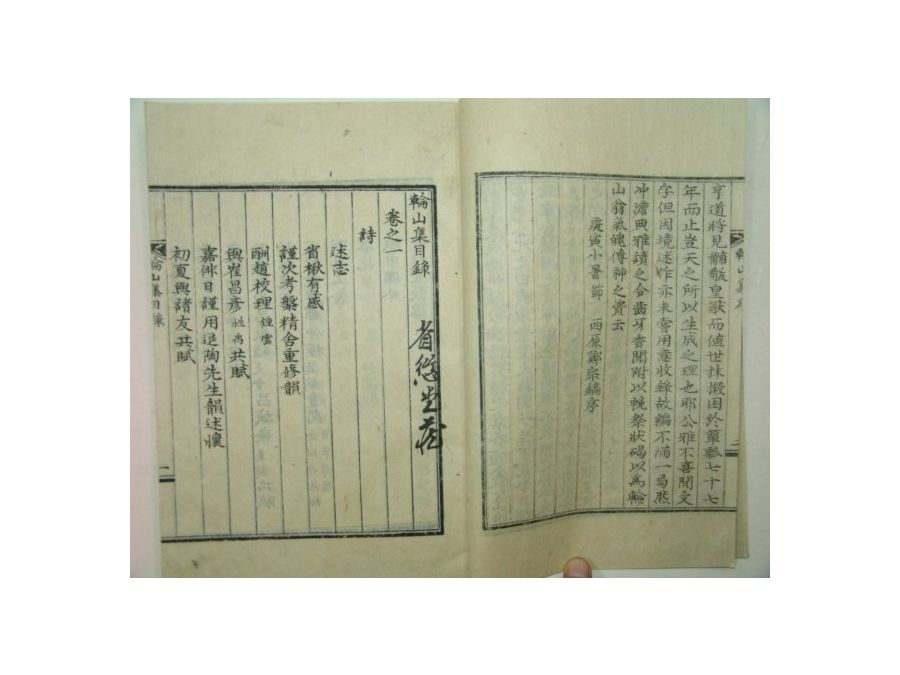 亨道將見黼黻皇猷而値世抹摋困於簞瓢七十七
年而止豈天之所以生成之理也耶公雅不喜聞文
字但因境述作亦未嘗用意收錄故編不滿一焉然
冲澹典雅讀之令齒牙香開附以輓祭狀碣以爲輪
山翁氣魄傳神之資云
庚寅小暑節 西原鄭宗鎬序
輪山集目錄
卷之一
詩
述志
省楸有感
謹次考槃精舍重修韻
酬趙校理
與崔昌彦 共賦
嘉俳日謹用退陶先生韻述懷
初夏與諸友共賦
輪山集目錄
一